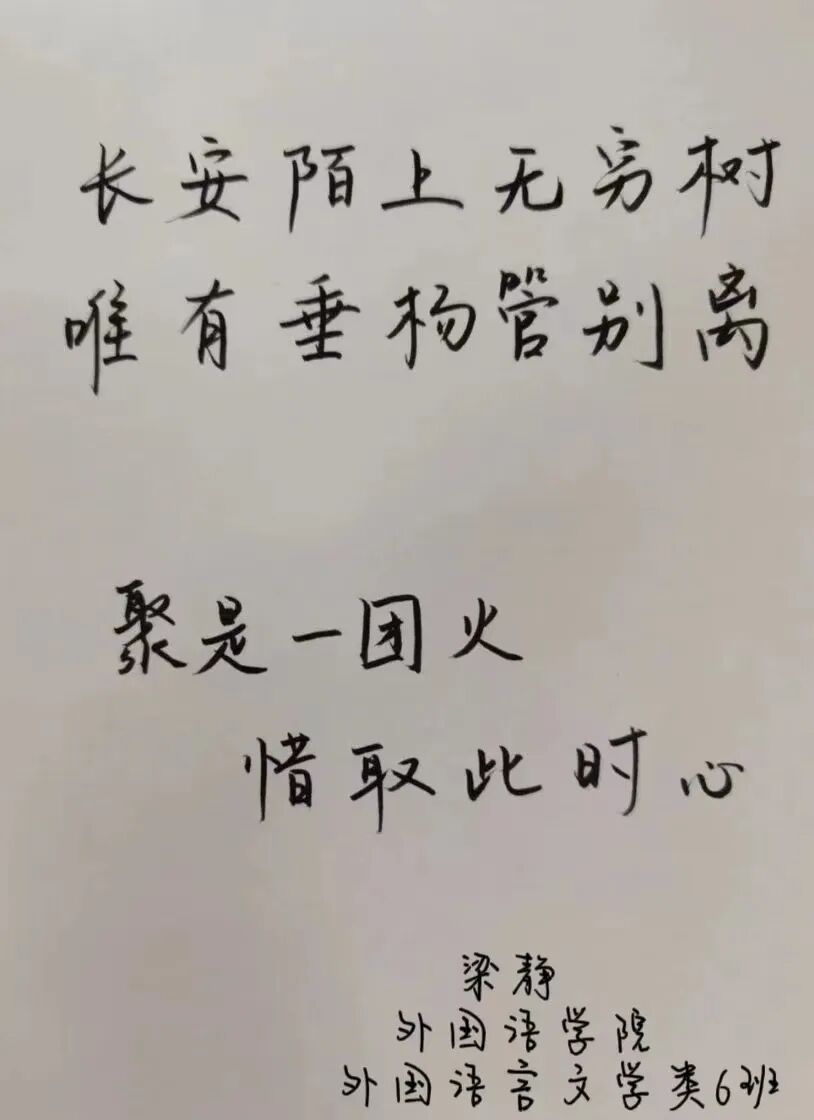 长安陌上无穷树
唯有垂杨管别离
聚是一团火
惜取此时心
梁静
外国语学院
外国语言文学类6班